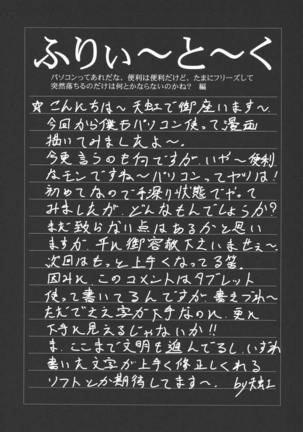 ふりぃ～と～く
パソコンってあれだな、便利は便利だけど、たまにフリーズして
突然落ちるのだけは何とかならないのかね？ 編
☆こんにちは～天虹で御座います～
今回から僕もパソコン使って漫画
描いてみましたよ～。
今更言うのも何ですが、いや～便利
なモンですね～パソコンってヤツは！
初めてなので手探り状態でやって
みましたが、どんなもんでしょうか？
まだ至らない点はあるかと思い
ますが、平に御容赦下さいませぇ～。
次回はもっと上手くなってる筈
因みに、このコメントはタブレット
使って書いてるんですが書きづれ～
ただでさえ字が下手なのに、更に
下手に見えるじゃないか!!
ま、ここまで文明も進んでるし、いずれ
書いた文字が上手く修正してくれる
ソフトとか期待してます～。 by天虹